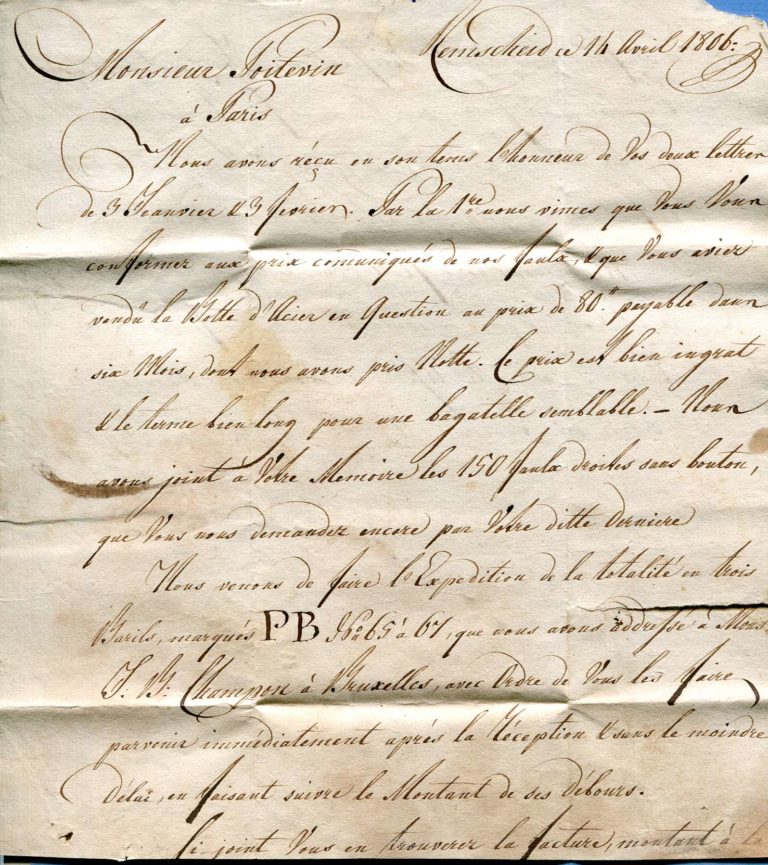 Remscheid ce 14 Avril 1806.
Monsieur Poitevin
à Paris
Nous avons réçu en son tems l'honneur de Vos deux lettres
de 3 Jeanvier & 3 fevrier. Par la 1re nous vimes que Vous Vous
conformez aux prix comuniqués de nos faulx, & que Vous aviez
vendû la Botte d'Acier en Question au prix de 80.# payable dans
six Mois, dont nous avons pris Notte. Ce prix est bien ingrat
& le terme bien long pour une bagatelle semblable. – Nous
avons joint à Votre Memoire les 150 faulx droites sans bouton,
que Vous nous demandez encore par Votre ditte derniere
Nous venons de faire l'Expedition de la totalité en trois
Barils, marqués PB No 65 à 67, que nous avons addressé à Mons.
J. B. Champon à Bruxelles, avec Ordre de Vous les faire
parvenir immédiatement aprés la Réception & sans le moindre
Délai, en faisant suivre le Montant de ses débours.
Ci-joint Vous en trouverez la facture, montant à la